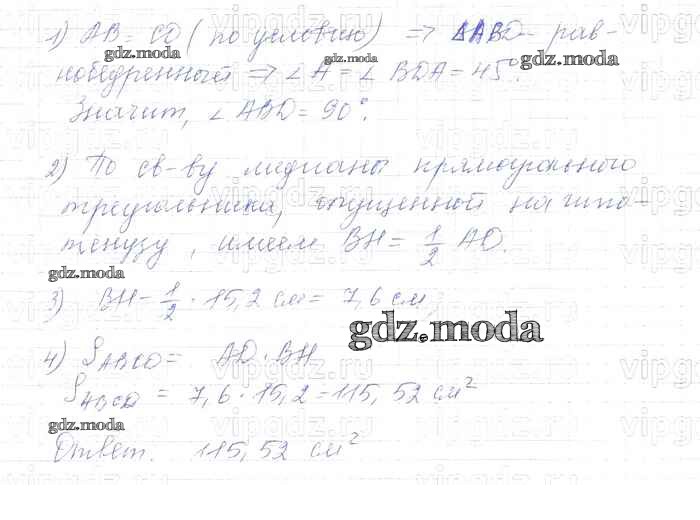 1) AB = CD (по условию) => ΔABD - рав-
нобедренный => ∠A = ∠BDA = 45°.
Значит, ∠ABD = 90°.
2) По св-ву медианы прямоугольного
треугольника, опущенной на гипо-
тенузу, имеем BH = 1/2 AD.
3) BH - 1/2 · 15,2 см = 7,6 см
4) S_ABCD = AD · BH
S_ABCD = 7,6 · 15,2 = 115,52 см²
Ответ. 115,52 см²
gdz.moda
gdz.moda
gdz.moda
gdz.moda
gdz.moda
gdz.moda
gdz.moda
vipgdz.ru